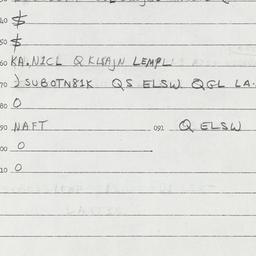 40 $
50 $
60 KA.NICL Q KHAJN LEMPL
70 )SUBOTN81K QS ELSW QGL LA.
80 O
90 NAFT 091 Q ELSW
00 O
10 O